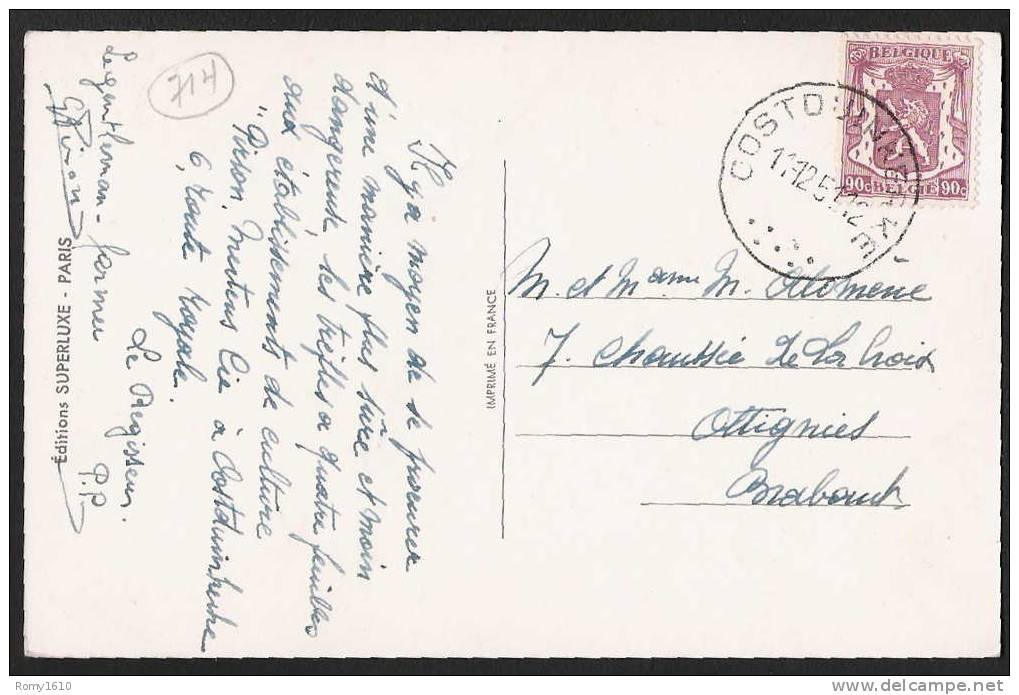 714
Il y a moyen de se procurer
d'une manière plus sûre et moin
dangereuse, les trèfles à quatre feuilles
aux établissements de culture
"Pirson, Mertens Cie à Oostduinkerke
6, route Royale.
Le Regisseur.
P.P
Le gentleman-farmer
GPirson
Éditions SUPERLUXE - PARIS
IMPRIMÉ EN FRANCE
BELGIQUE
90c BELGIË 90c
OOSTDUINKERKE
11-12 51 12
M. et Mame M.
7. Chaussée de La Croix
Ottignies
Brabant
Romy1610
delcampe.net